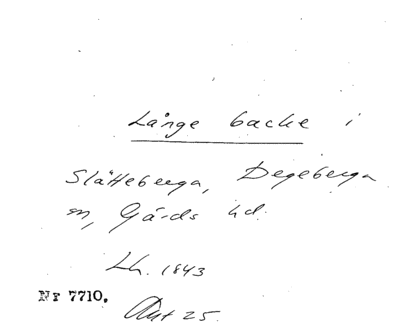 Långe backe i
Slätteberga, Degeberga
sn, Gärds hd.
Lh. 1843
Nr 7710.
Akt 25.